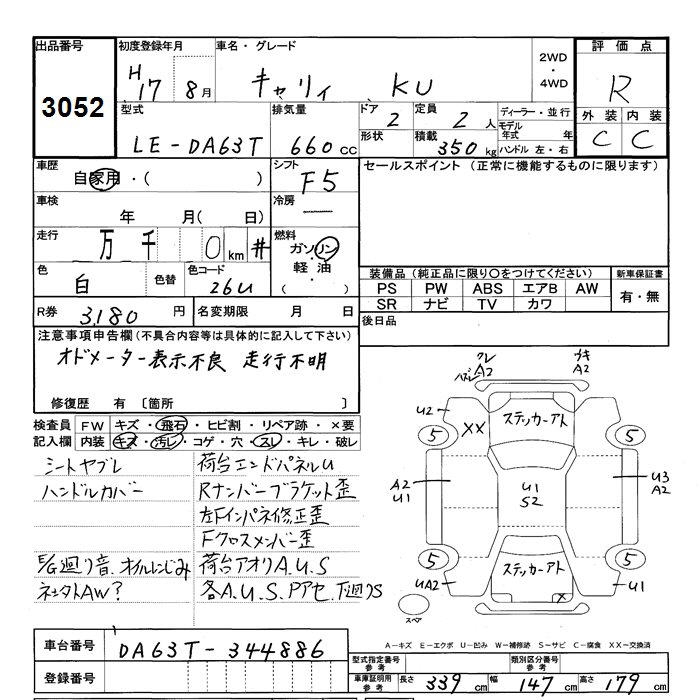 出品番号
3052
初度登録年月
H17 8月
車名・グレード
キャリィ KU
2WD
・
4WD
評価点
R
外装 内装
C C
型式
LE-DA63T
排気量
660cc
ドア 2
形状
定員 2人
積載 350kg
ディーラー・並行
モデル年式 年
ハンドル 左・右
車歴
自家用・( )
シフト
F5
セールスポイント (正常に機能するものに限ります)
車検
年 月( 日)
冷房
―
走行
万 千 0km #
燃料
ガソリン
軽油
・( )
色
白
色替
色コード
26U
装備品 (純正品に限り○をつけてください)
PS PW ABS エアB AW
SR ナビ TV カワ
新車保証書
有・無
R券 3,180円
名変期限 月 日
後日品
注意事項申告欄 (不具合内容等は具体的に記入して下さい)
オドメーター表示不良 走行不明
修復歴 有 〔箇所 〕
検査員記入欄
FW キズ・飛石・ヒビ割・リペア跡・×要
内装 キズ・汚レ・コゲ・穴・スレ・キレ・破レ
シートヤブレ
ハンドルカバー
E/G廻り音.オイルにじみ
荷台エンドパネルU
Rナンバーブラケット歪
左Fインパネ修正歪
Fクロスメンバー歪
荷台アオリA.U.S
各A.U.S.Pアセ.下廻りS
A2
A2
U2
XX
ステッカーアト
5
5
A2
U1
U1
S2
U3
A2
5
5
UA2
ステッカーアト
×
U1
スペア
A－キズ E－エクボ U－凹み W－補修跡 S－サビ C－腐食 XX－交換済
車台番号
DA63T-344886
登録番号
型式指定番号 参考
類別区分番号 参考
車庫証明用 参考
長さ 339cm 幅 147cm 高さ 179cm